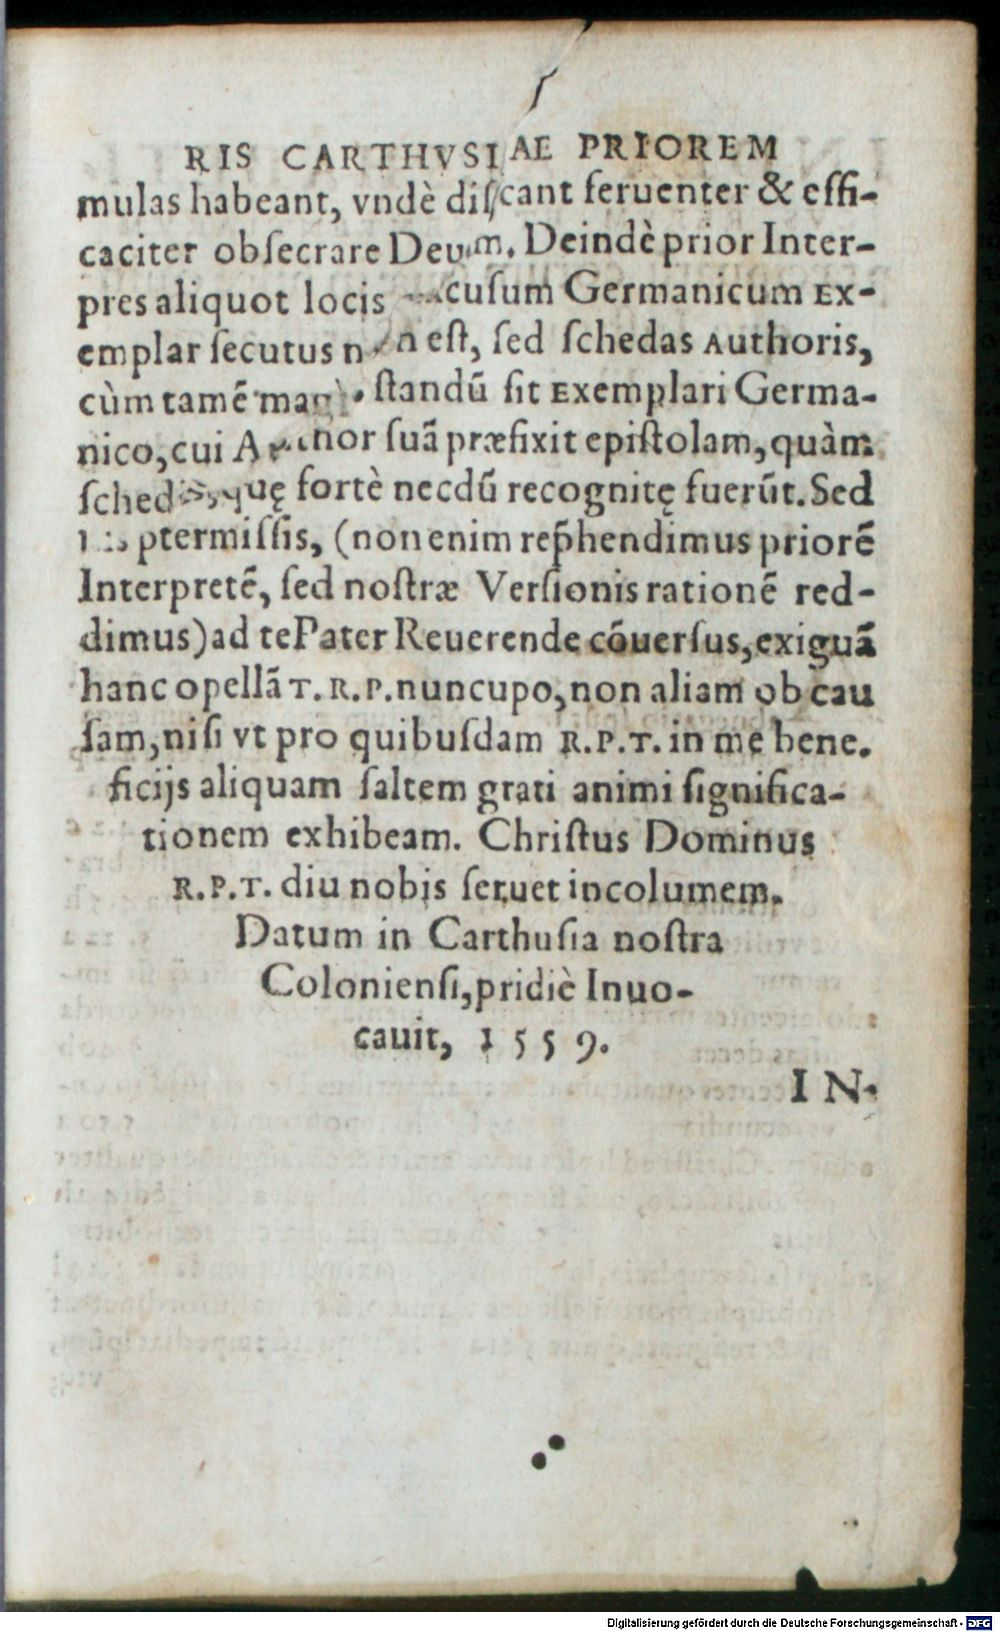 RIS CARTHVSIAE PRIOREM
mulas habeant, vndè diſcant feruenter & effi-
caciter obſecrare Deum. Deindè prior Inter-
pres aliquot locis cuſum Germanicum Ex-
emplar ſecutus non eſt, ſed ſchedas Authoris,
cùm tamē magis ſtandū ſit Exemplari Germa-
nico, cui Author ſuā præfixit epiſtolam, quàm
ſchedis, quę fortè necdū recognitę fuerūt. Sed
his ptermiſſis, (non enim rep̄hendimus priorē
Interpretē, ſed noſtræ Verſionis rationē red-
dimus) ad te Pater Reuerende cōuerſus, exiguā
hanc opellā T. R. P. nuncupo, non aliam ob cau
ſam, niſi vt pro quibuſdam R. P. T. in me bene.
ficijs aliquam ſaltem grati animi ſignifica-
tionem exhibeam. Chriſtus Dominus
R. P. T. diu nobis ſeruet incolumem.
Datum in Carthuſia noſtra
Colonienſi, pridiè Inuo-
cauit, 1559.
IN-
Digitalisierung gefördert durch die Deutsche Forschungsgemeinschaft - DFG